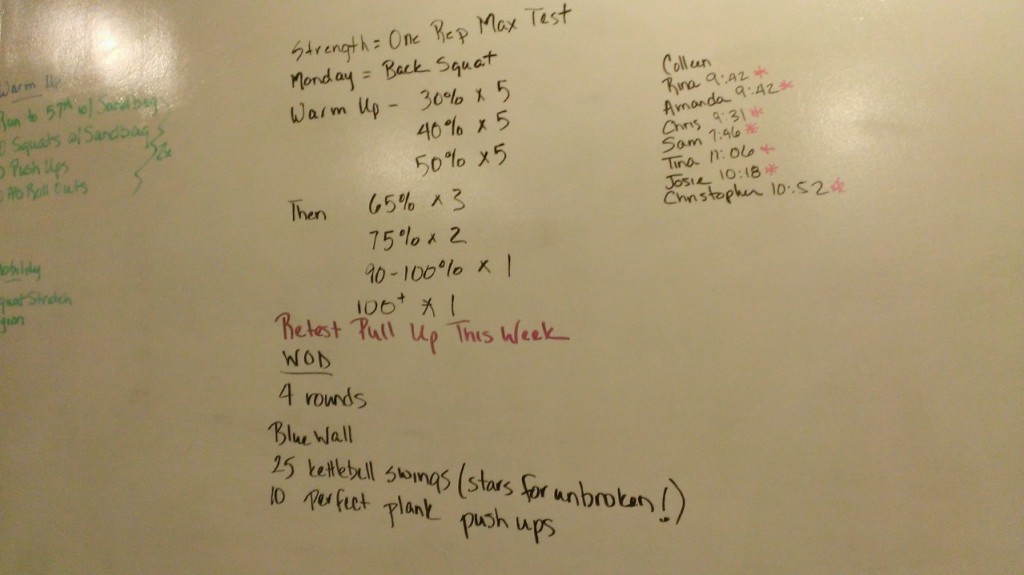 Warm Up
Run to 57th w/ Sandbag
Squats w/ Sandbag
Push Ups
Ab Roll Outs
2x
Mobility
Squat Stretch
Strength = One Rep Max Test
Monday = Back Squat
Warm Up - 30% x 5
40% x 5
50% x 5
Then 65% x 3
75% x 2
90-100% x 1
100+ x 1
Retest Pull Up This Week
WOD
4 rounds
Blue Wall
25 kettlebell swings (stars for unbroken!)
10 perfect plank push ups
Colleen
Rina 9:42 *
Amanda 9:42 *
Chris 9:31 *
Sam 7:46 *
Tina 11:06 *
Josie 10:18 *
Christopher 10:52 *